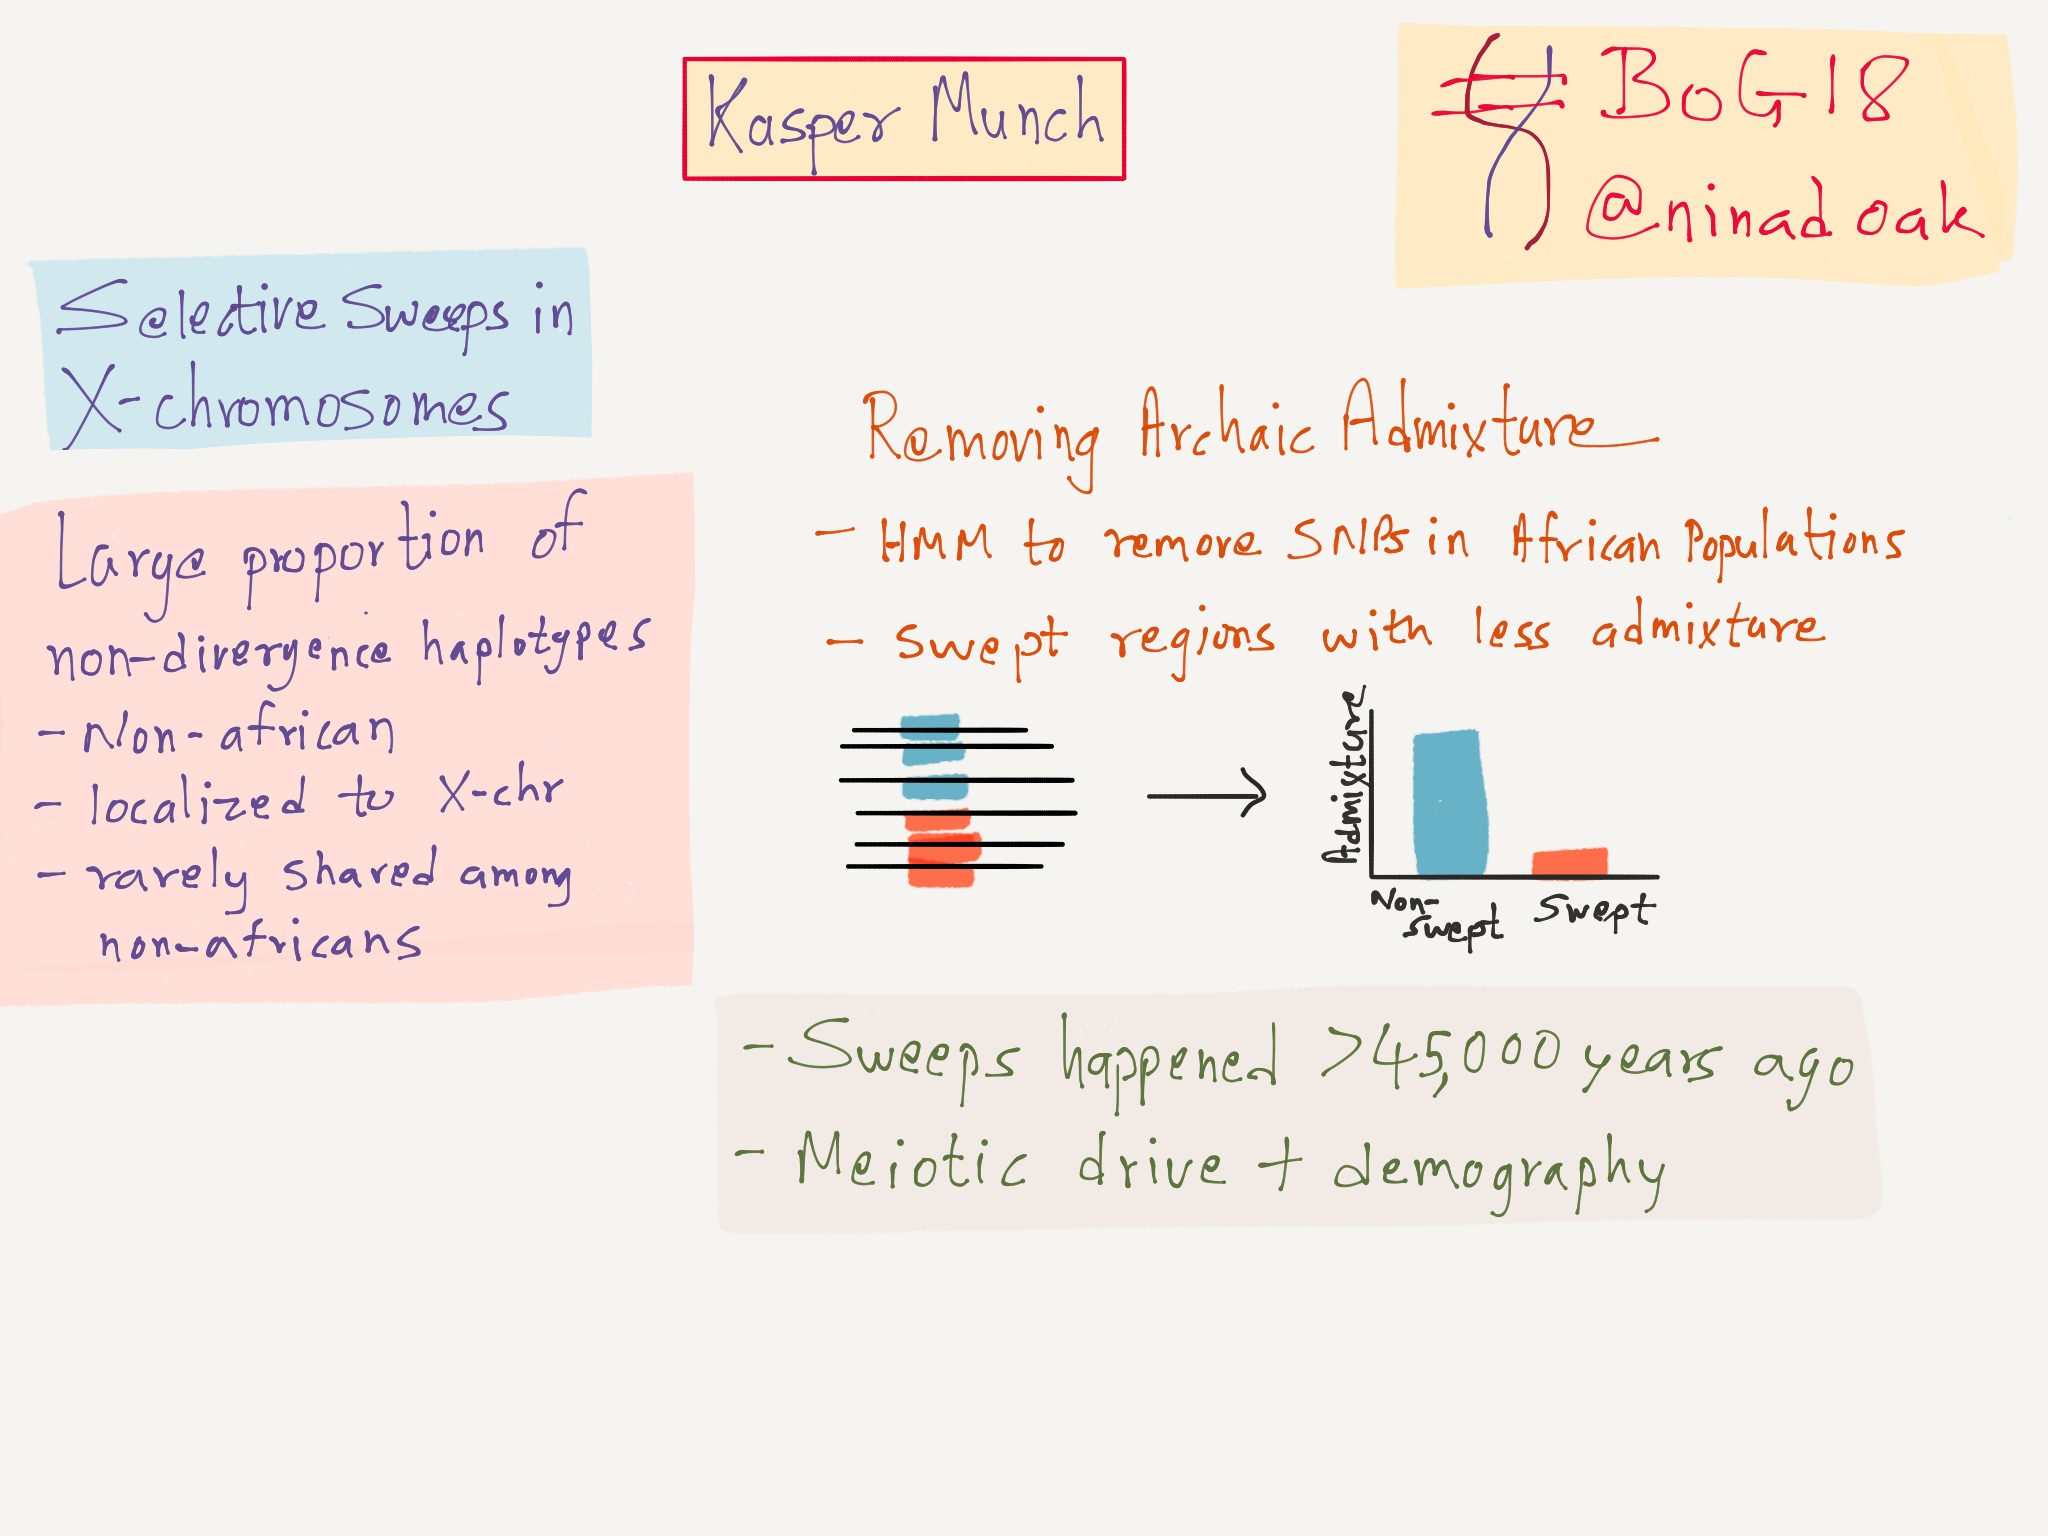 Kasper Munch
# BoG18
@ninadoak
Selective Sweeps in
X-chromosomes
Large proportion of
non-divergence haplotypes
- Non-african
- localized to X-chr
- rarely shared among
non-africans
Removing Archaic Admixture
- HMM to remore SNPs in African Populations
- Swept regions with less admixture
Admixture
Non-
swept
Swept
- Sweeps happened >45,000 years ago
- Meiotic drive + demography